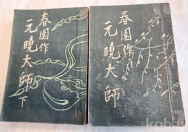 春園作
元曉大師
下
春園作
元曉大師
kobay